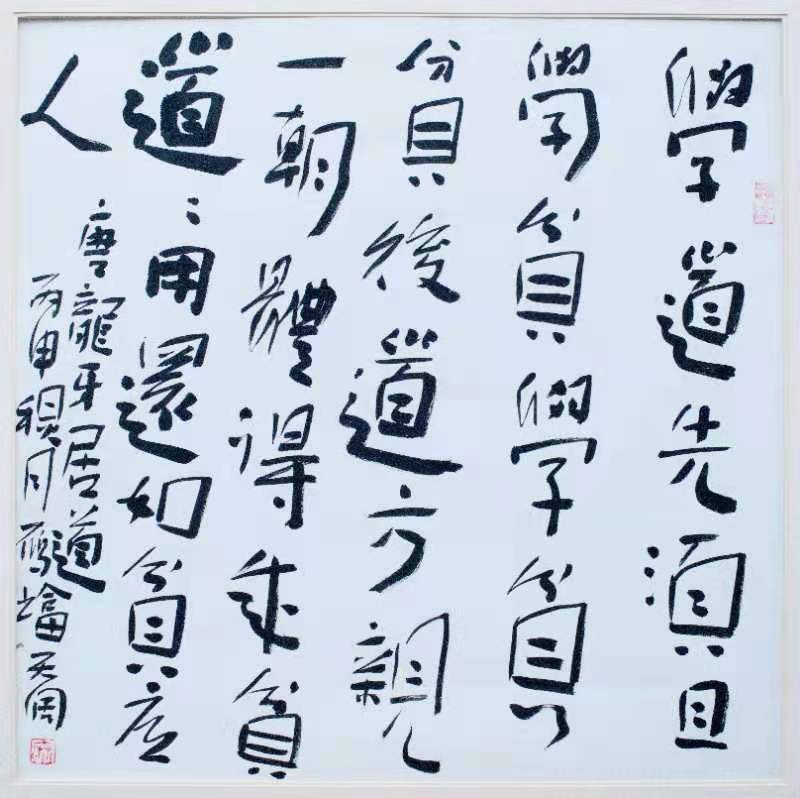 學道先須且
學貧學貧
貧後道方親
一朝體得成貧
道〻用還如貧底
人
唐龍牙居道
丙申月